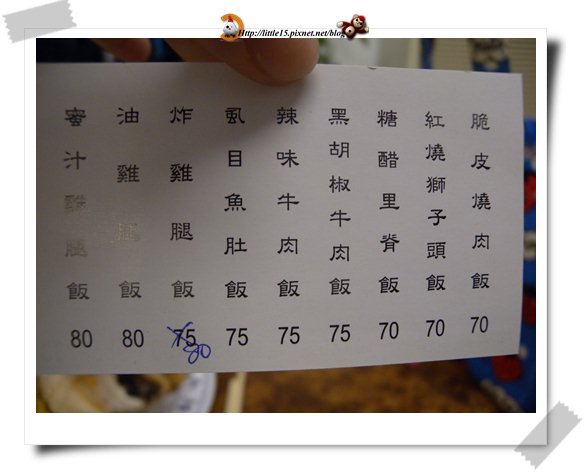 Http://little15.pixnet.net/blog
脆皮燒肉飯 70
紅燒獅子頭飯 70
糖醋里脊飯 70
黑胡椒牛肉飯 75
辣味牛肉飯 75
虱目魚肚飯 75
炸雞腿飯 75 80
油雞腿飯 80
蜜汁雞腿飯 80